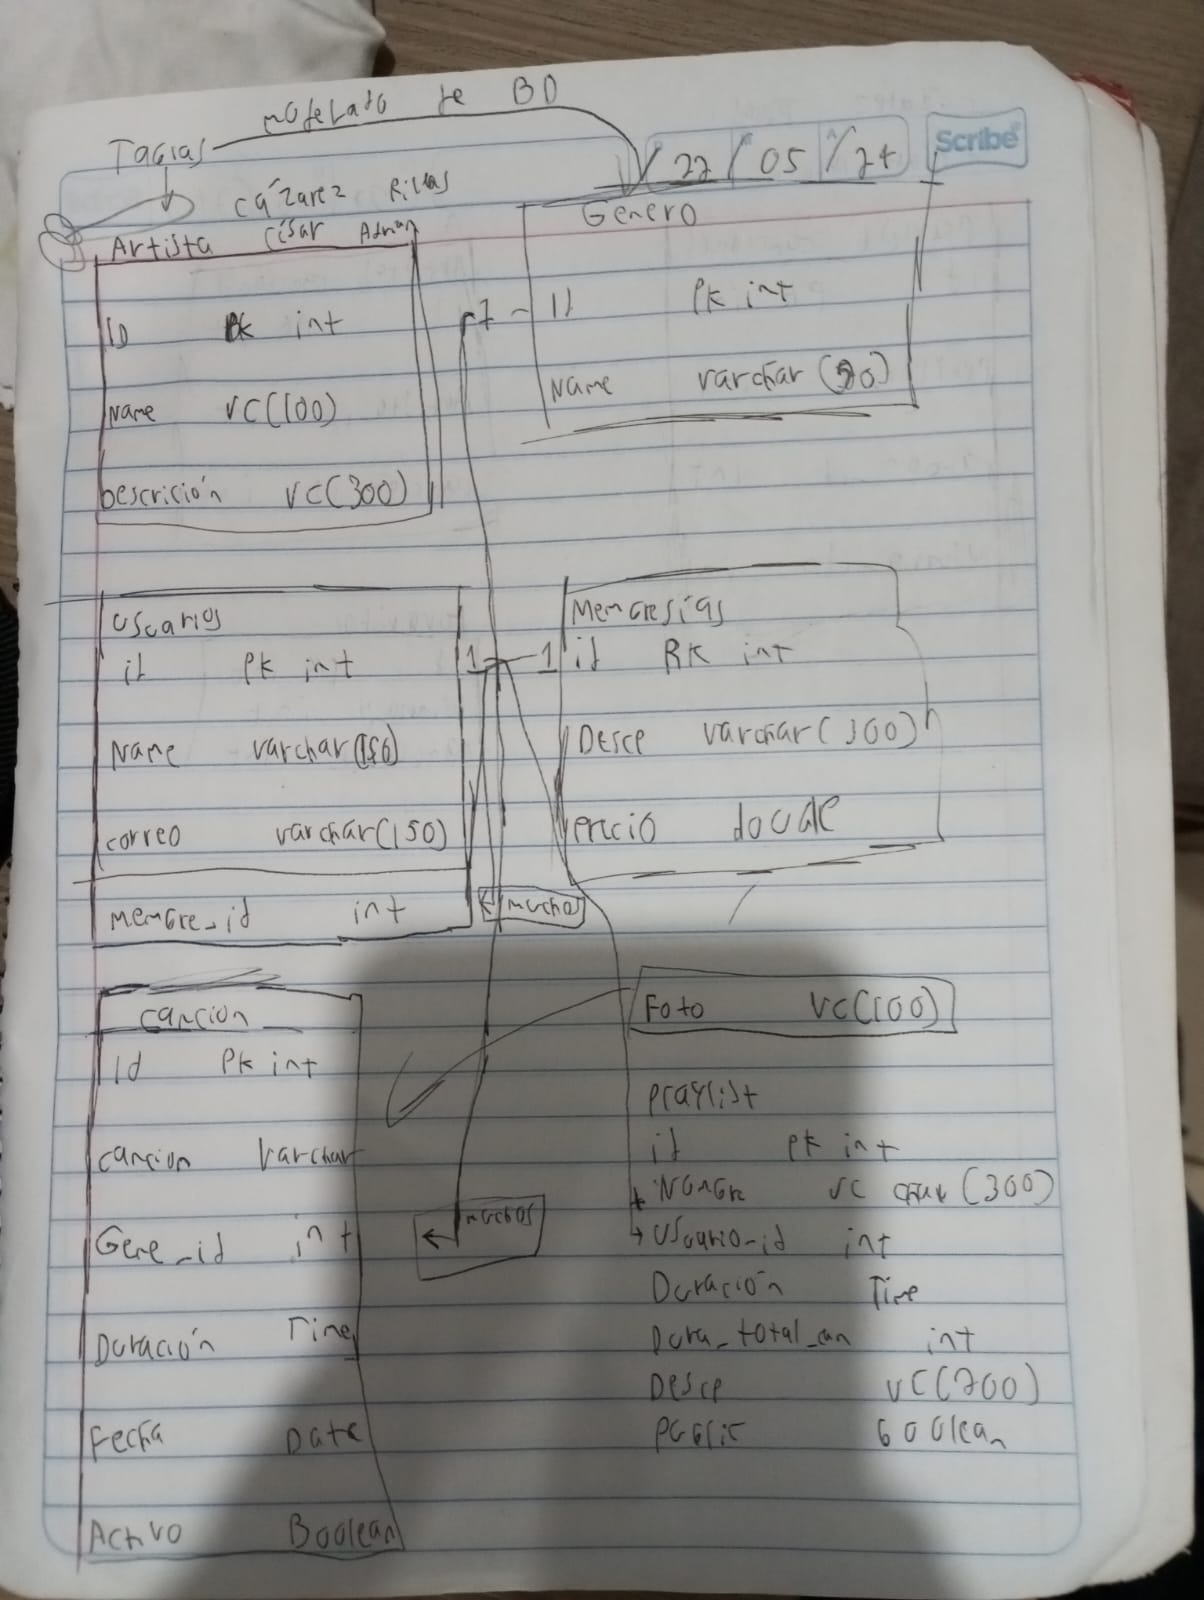 modelado de BD
Tablas
22 / 05 / 24
Scribe
Cázarez Rivas
César Adrian
Artista
ID PK int
Name VC(100)
Descrición VC(300)
Genero
Id PK int
Name varchar (50)
1
Usuarios
id PK int
Name varchar(150)
correo varchar(150)
Membre_id int
1 1
muchos
Membresias
id PK int
Desce varchar(300)
Precio double
cancion
Id PK int
cancion Varchar
Gene_id int
Duración Time
Fecha Date
Activo Boolean
muchos
Foto VC(100)
playlist
id pk int
Nombre VC char (300)
Usuario_id int
Duración Time
Dura_total_can int
Desce VC(200)
Public boolean